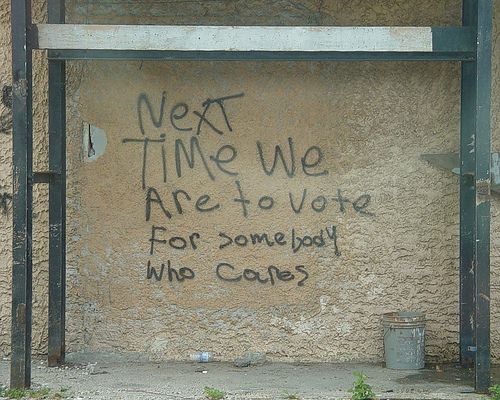 Next
Time We
Are to vote
For somebody
Who Cares